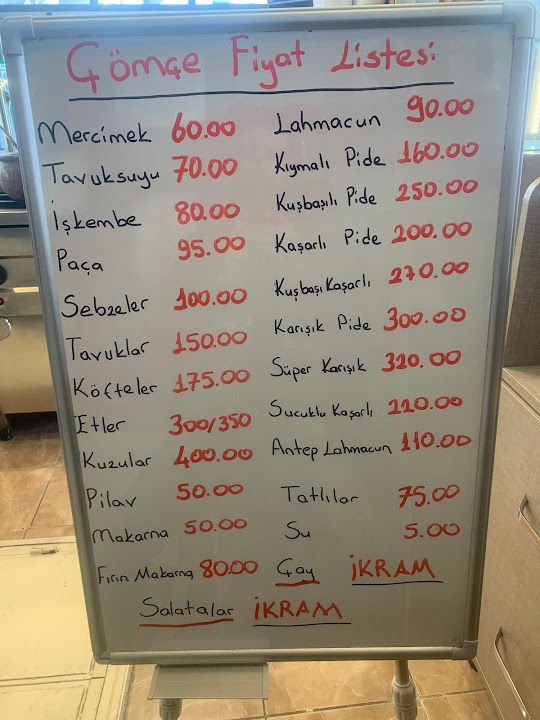 Gömçe Fiyat Listesi
Mercimek 60.00
Tavuksuyu 70.00
İşkembe 80.00
Paça 95.00
Sebzeler 100.00
Tavuklar 150.00
Köfteler 175.00
Etler 300/350
Kuzular 400.00
Pilav 50.00
Makarna 50.00
Fırın Makarna 80.00
Salatalar İKRAM
Lahmacun 90.00
Kıymalı Pide 160.00
Kuşbaşılı Pide 250.00
Kaşarlı Pide 200.00
Kuşbaşı Kaşarlı 270.00
Karışık Pide 300.00
Süper Karışık 320.00
Sucuklu Kaşarlı 220.00
Antep Lahmacun 110.00
Tatlılar 75.00
Su 5.00
Çay İKRAM